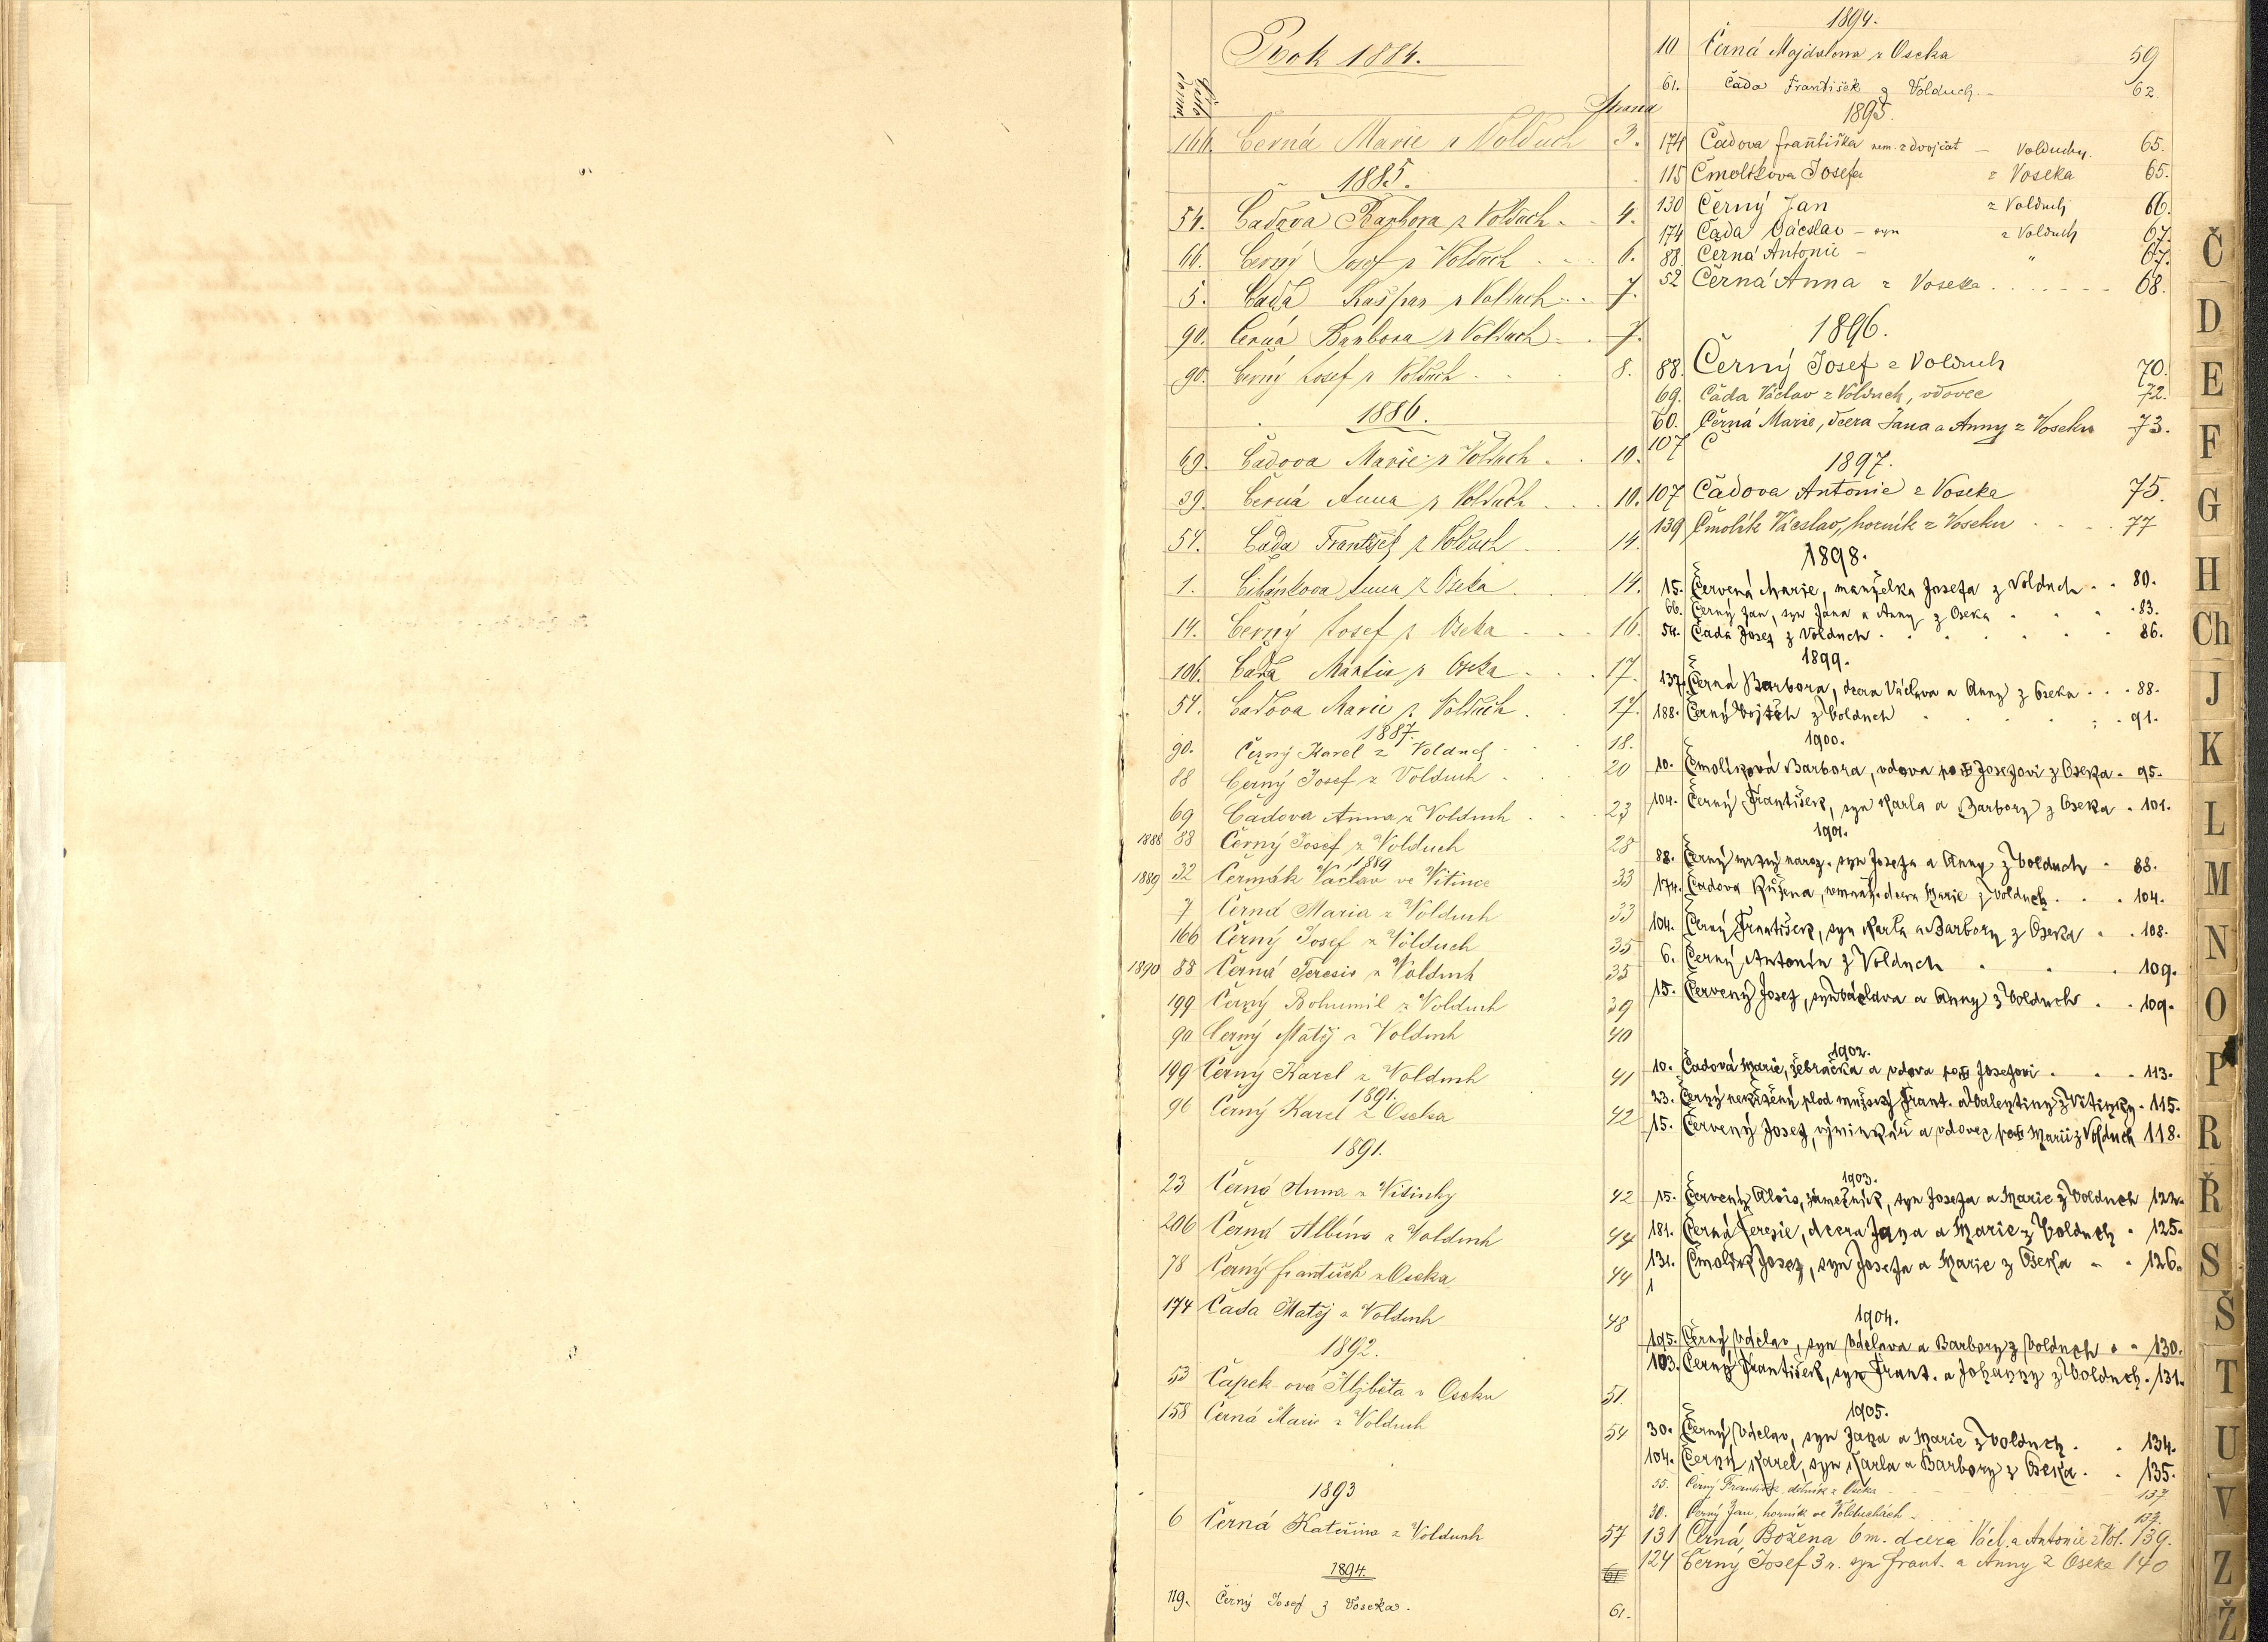 Rok 1884.
Číslo domu
Strana
166. Černá Marie z Volduch 3.
1885.
54. Čadova Barbora z Volduch 4.
66. Černý Josef z Volduch 6.
5. Čada Kašpar z Volduch 7.
90. Černá Barbora z Volduch 7.
90. Černý Josef z Volduch 8.
1886.
69. Čadova Marie z Volduch 10.
39. Černá Anna z Volduch 10.
54. Čada František z Volduch 14.
1. Anna z Oseka 14.
14. Černý Josef z Oseka 16.
106. Čada Martin z Oseka 17.
54. Čadova Marie z Volduch 17.
1887.
90. Černý Karel z Volduch 18.
88 Černý Josef z Volduch 20
69 Čadova Anna z Volduch 23
1888 88 Černý Josef z Volduch 28
1889
1889 32 Čermák Václav ve Vitince 33
7 Černá Maria z Volduch 33
166 Černý Josef z Volduch 35
1890 88 Černá Teresie z Volduch 35
199 Černý Bohumil z Volduch 39
90 Černý Matěj z Volduch 40
199 Černý Karel z Volduch 41
1891.
96 Černý Karel z Oseka 42
1891.
23 Černá Anna z Vitinky 42
206 Černá Albína z Volduch 44
78 Černý František z Oseka 44
174 Čada Matěj z Volduch 48
1892.
53 Čapek-ová Alžběta v Oseku 51.
158 Černá Marie z Volduch 54
1893
6 Černá Kateřina z Volduch 57
1894. 61
119. Černý Josef z Voseka. 61.
1894.
10 Černá Majdalena z Oseka 59
61. Čada František z Volduch. 62.
1895.
174 Čadova Františka nem. z dvojčat – Volduchy. 65.
115 Čmolíkova Josefa z Voseka 65.
130 Černý Jan z Volduch 66.
174 Čada Václav – syn z Volduch 67.
88 Černá Antonie – " 67.
52 Černá Anna z Voseka 68.
1896.
88. Černý Josef z Volduch 70.
69. Čada Václav z Volduch, vdovec 72.
60. Černá Marie, dcera Jana a Anny z Voseku 73.
107 Č
1897.
107 Čadova Antonie z Voseka 75.
139 Čmolík Václav, horník z Voseku 77
1898.
15. Červená Marie, manželka Josefa z Volduch 80.
66. Černý Jan, syn Jana a Anny z Oseka 83.
54. Čada Josef z Volduch 86.
1899.
137. Černá Barbora, dcera Václava a Anny z Oseka 88.
188. Černý Vojtěch z Volduch 91.
1900.
10. Čmolíková Barbora, vdova po Josefovi z Oseka 95.
104. Černý František, syn Karla a Barbory z Oseka 101.
1901.
88. Černý mrtvý naroz. syn Josefa a Anny z Volduch 88.
174. Čadova Růžena, nemanž. dcera Marie z Volduch 104.
104. Černý František, syn Karla a Barbory z Oseka 108.
6. Černý Antonín z Volduch 109.
15. Červený Josef, syn Václava a Anny z Volduch 109.
1902.
10. Čadová Marie, žebračka a vdova po Josefovi 113.
23. Černý nekřtěný plod mužský Frant. a Valentiny z Vitinky 115.
15. Červený Josef, výminkář a vdovec po Marii z Volduch 118.
1903.
15. Červený Alois, zámečník, syn Josefa a Marie z Volduch 122.
181. Černá Teresie, dcera Jana a Marie z Volduch 125.
131. Čmolík Josef, syn Josefa a Marie z Oseka 126.
1
1904.
195. Černý Václav, syn Václava a Barbory z Volduch 130.
103. Černý František, syn Frant. a Johanny z Volduch. 131.
1905.
30. Černý Václav, syn Jana a Marie z Volduch 134.
104. Černý Karel, syn Karla a Barbory z Oseka 135.
55. Černý František, dělník z Oseka 137
30. Černý Jan, horník ve Volduchách 137.
131 Černá Božena 6 m. dcera Václ. a Antonie z Vol. 139.
124 Černý Josef 3 r. syn Frant. a Anny z Oseka 140
Č
D
E
F
G
H
Ch
J
K
L
M
N
O
P
R
Ř
S
Š
T
U
V
Z
Ž